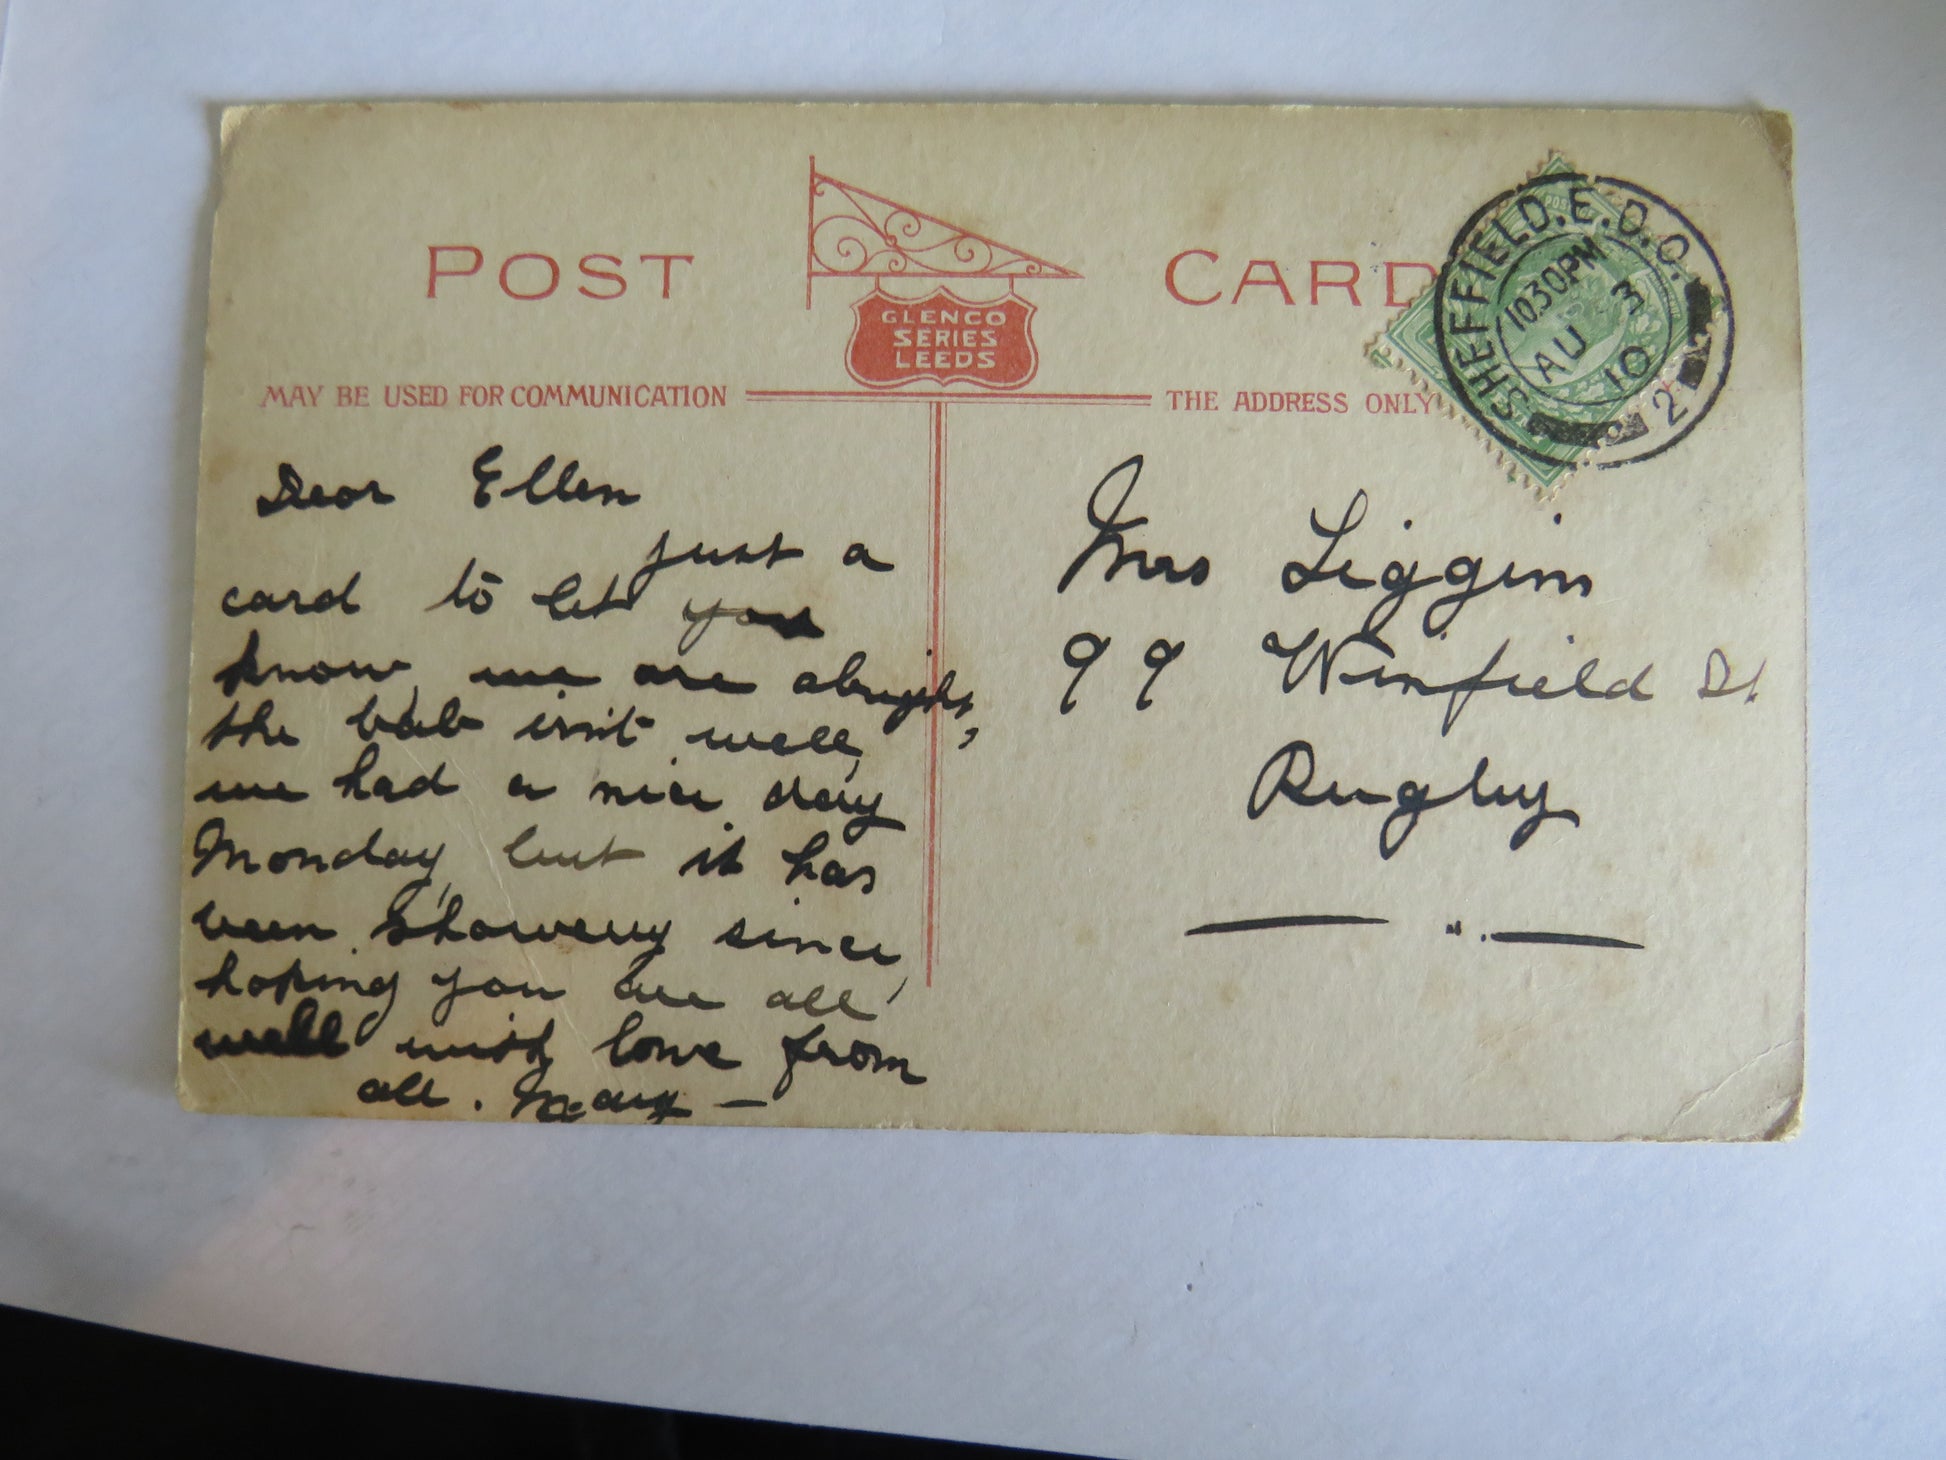 POST CARD
GLENCO
SERIES
LEEDS
MAY BE USED FOR COMMUNICATION
THE ADDRESS ONLY
SHEFFIELD.E.D.O.
1030PM
AU 3
10
21
Dear Ellen
just a
card to let you
know we are alright,
the bab isn't well,
we had a nice day
Monday, but it has
been showery since,
hoping you are all
well with love from
all. Mary —
Mrs Liggins
99 Winfield St
Rugby